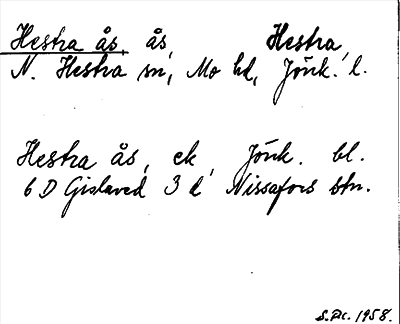 Hestra ås, ås, Hestra,
N. Hestra sn, Mo hd, Jönk. l.
Hestra ås, ek, Jönk. bl.
6 D Gislaved 3 d, Nissafors stn.
1958.